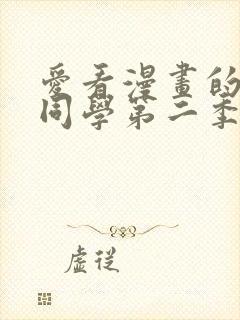 愛看漫畫的
同學第二季
虛從